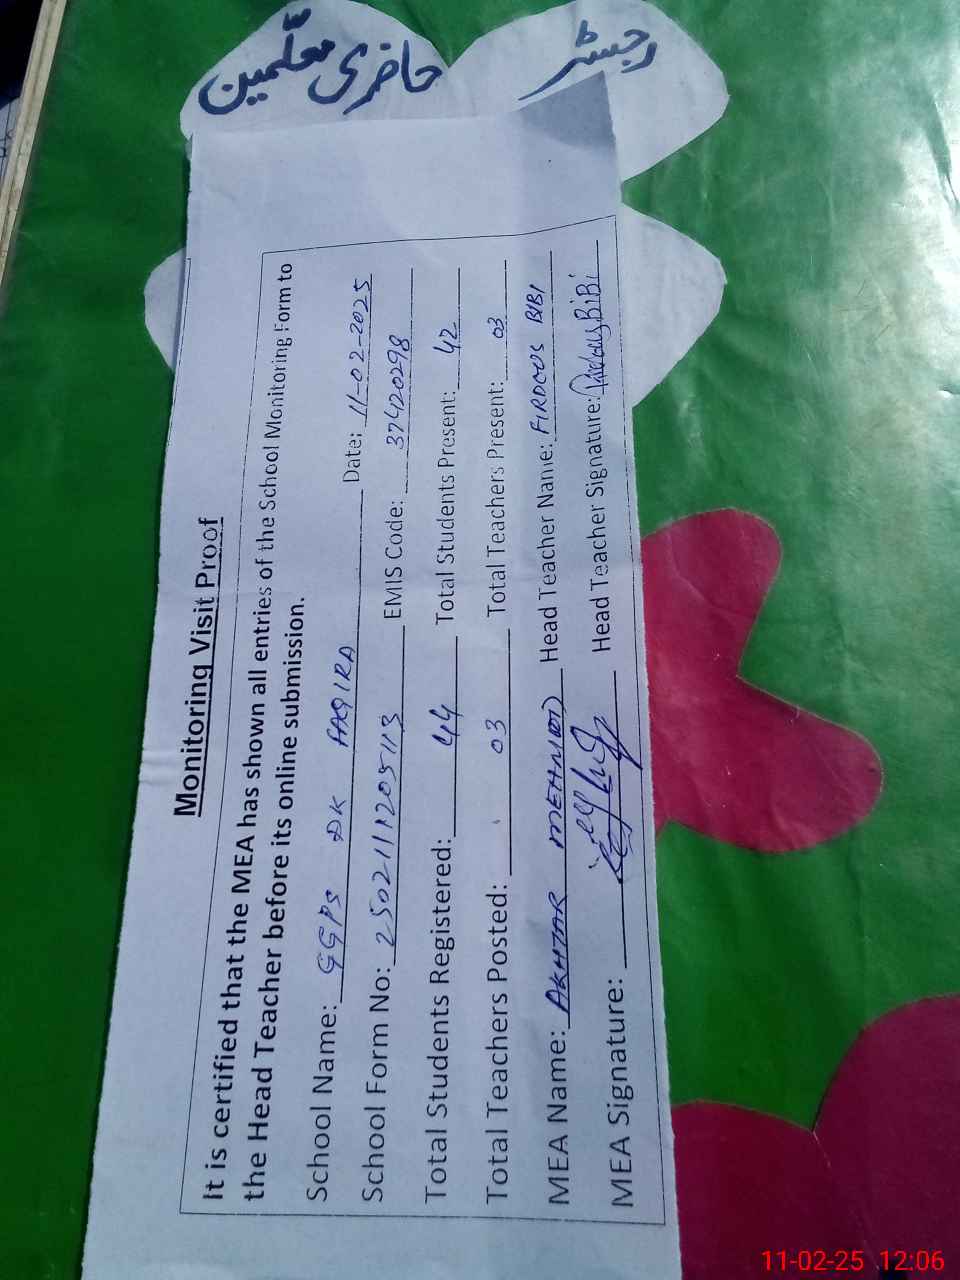 رجسٹر حاضری معلّمین
Monitoring Visit Proof
It is certified that the MEA has shown all entries of the School Monitoring Form to
the Head Teacher before its online submission.
School Name: GGPS DK FAQIRA Date: 11-02-2025
School Form No: 25021111205113 EMIS Code: 37420298
Total Students Registered: 44 Total Students Present: 42
Total Teachers Posted: 03 Total Teachers Present: 03
MEA Name: AKHTAR MEHMOOD Head Teacher Name: FIRDOUS BIBI
MEA Signature: Head Teacher Signature: Firdous BiBi
11-02-25 12:06